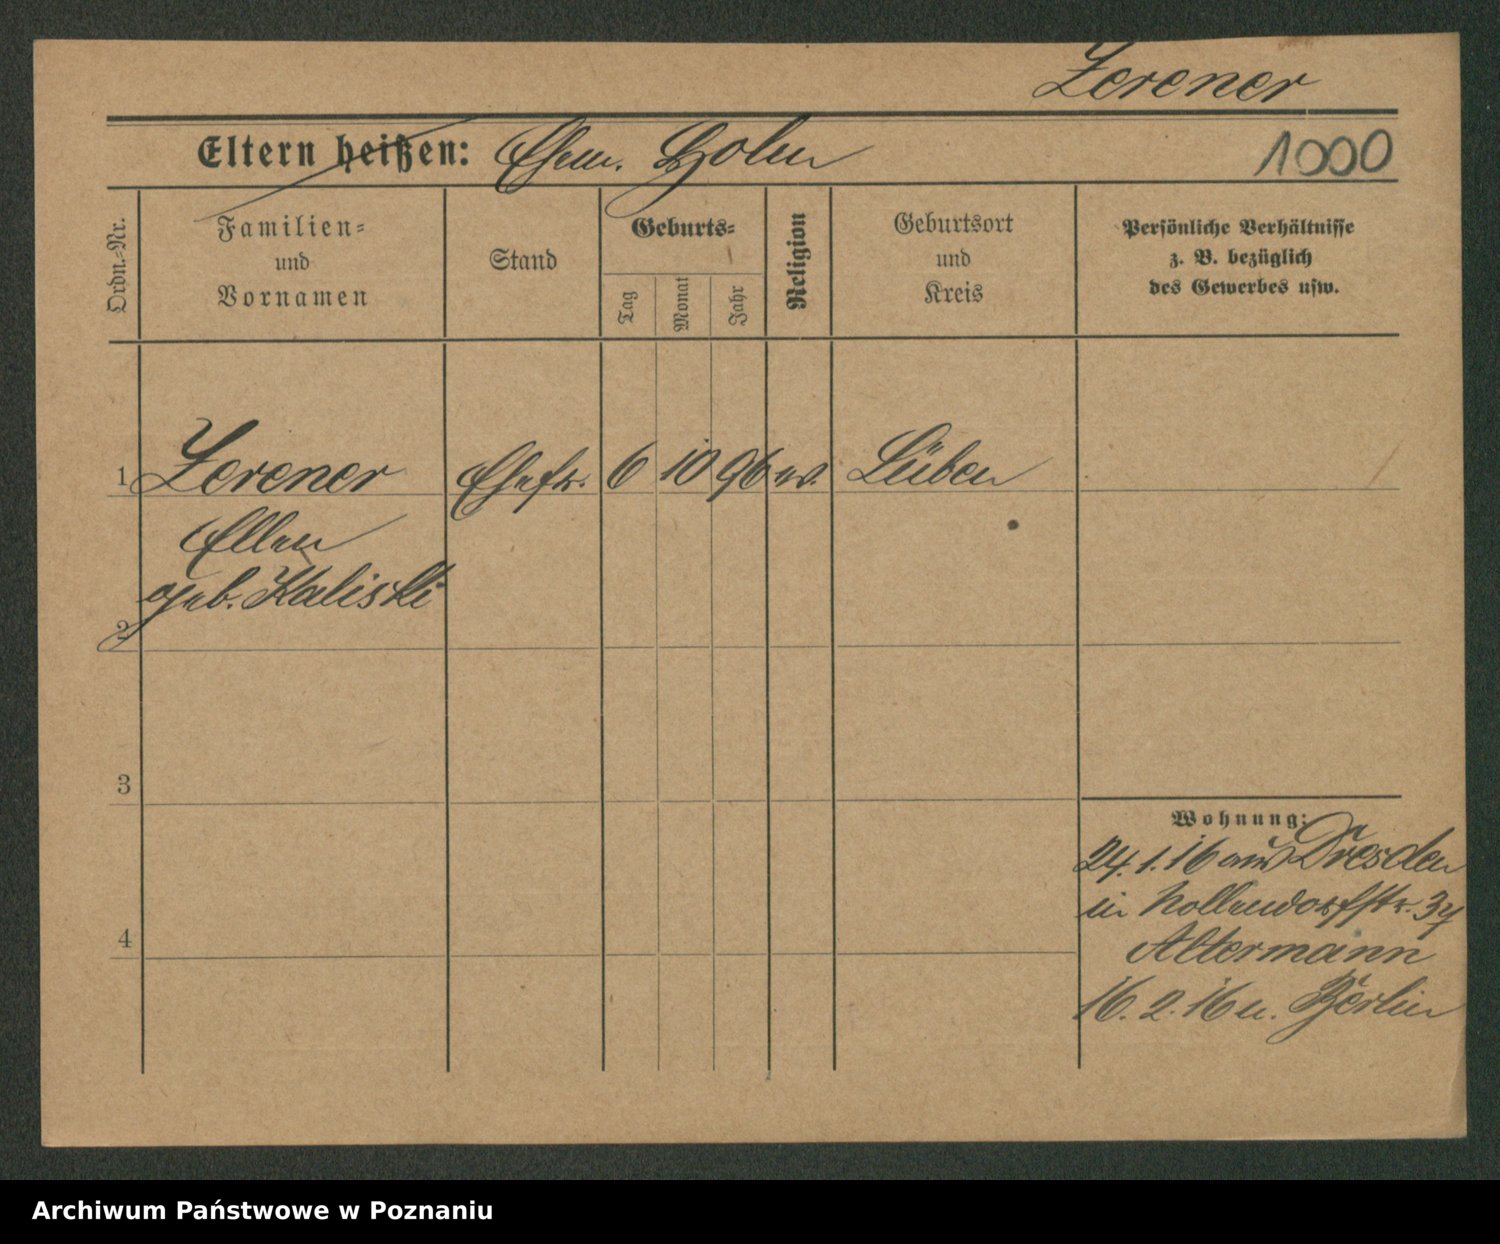 Zerener
Eltern heißen: Ehem.
1000
Ordn.-Nr.
Familien-
und
Vornamen
Stand
Geburts-
Tag
Monat
Jahr
Religion
Geburtsort
und
Kreis
Persönliche Verhältnisse
z. B. bezüglich
des Gewerbes usw.
1 Zerener Ehefr. 6 10 96 ev. Lüben
Ellen
geb. Kaliski
2
3
4
Wohnung:
24. 1. 16 aus Dresden
in Nollendorfstr. 37
Altermann
16. 2. 16 n. Berlin
Archiwum Państwowe w Poznaniu